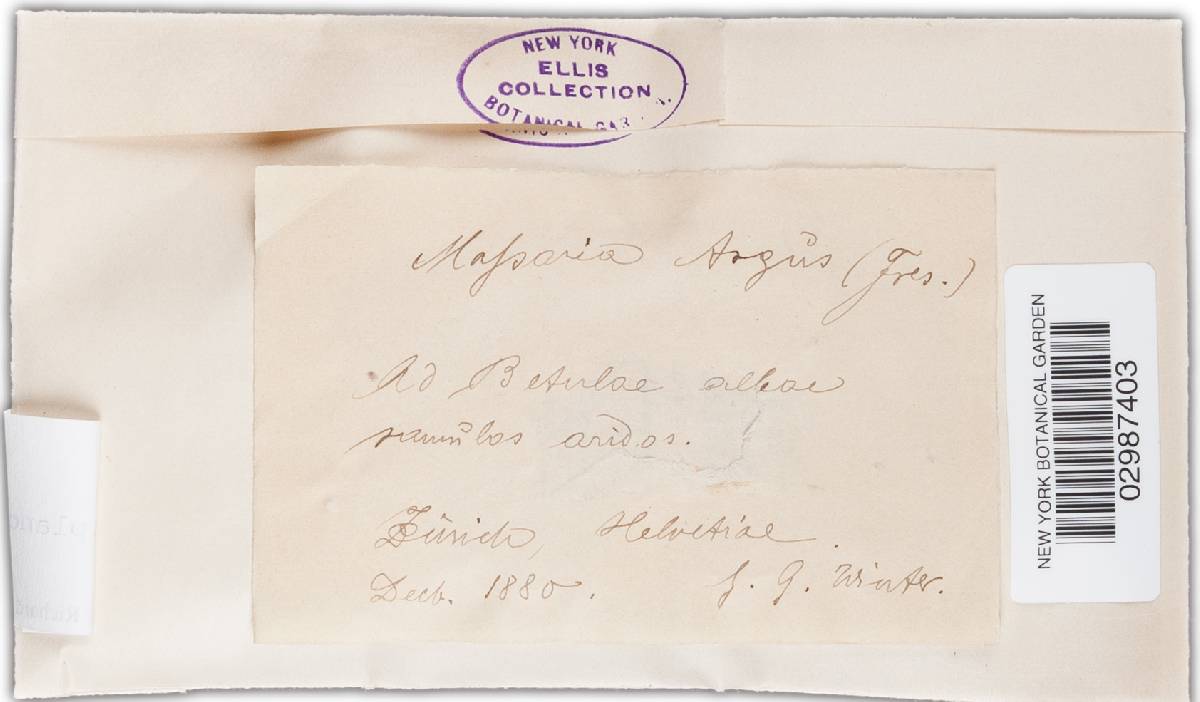 NEW YORK
ELLIS
COLLECTION
BOTANICAL GARDEN.
Massaria Argus (Fres.)
Ad Betulae albae
ramulos aridos.
Zürich, Helvetiae.
Decb. 1880.
J. G. Winter.
NEW YORK BOTANICAL GARDEN
02987403